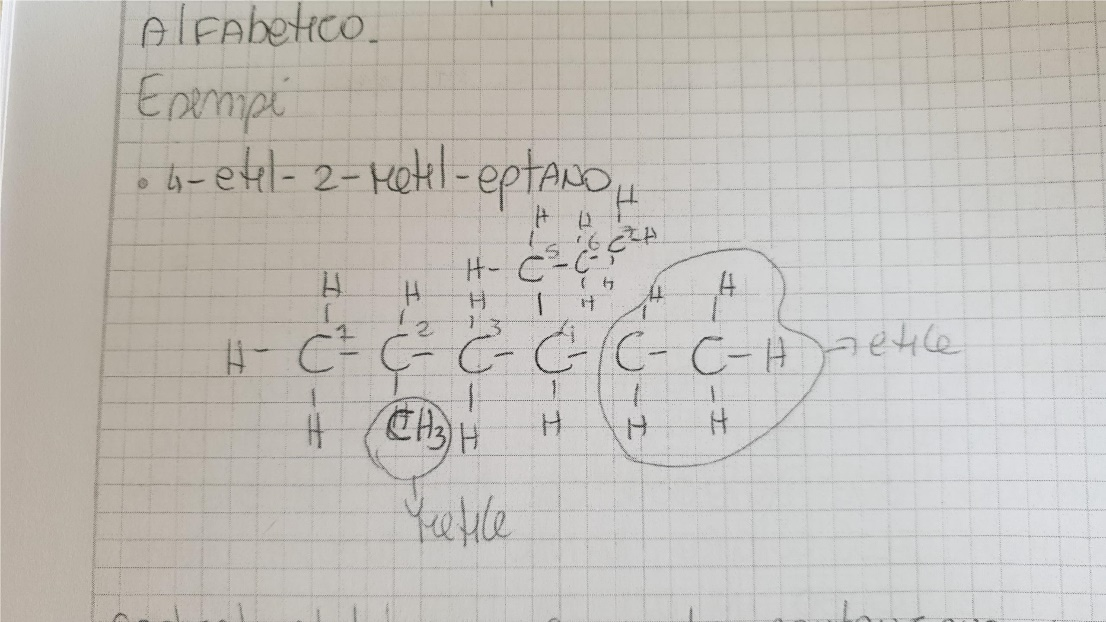 Alfabetico.
Esempi
• 4-etil-2-metil-eptano
H
H H C7-H
H- C5-C6 H
H H H H H H
H- C1-C2-C3-C4-C-C-H → etile
H CH3 H H H H
metile